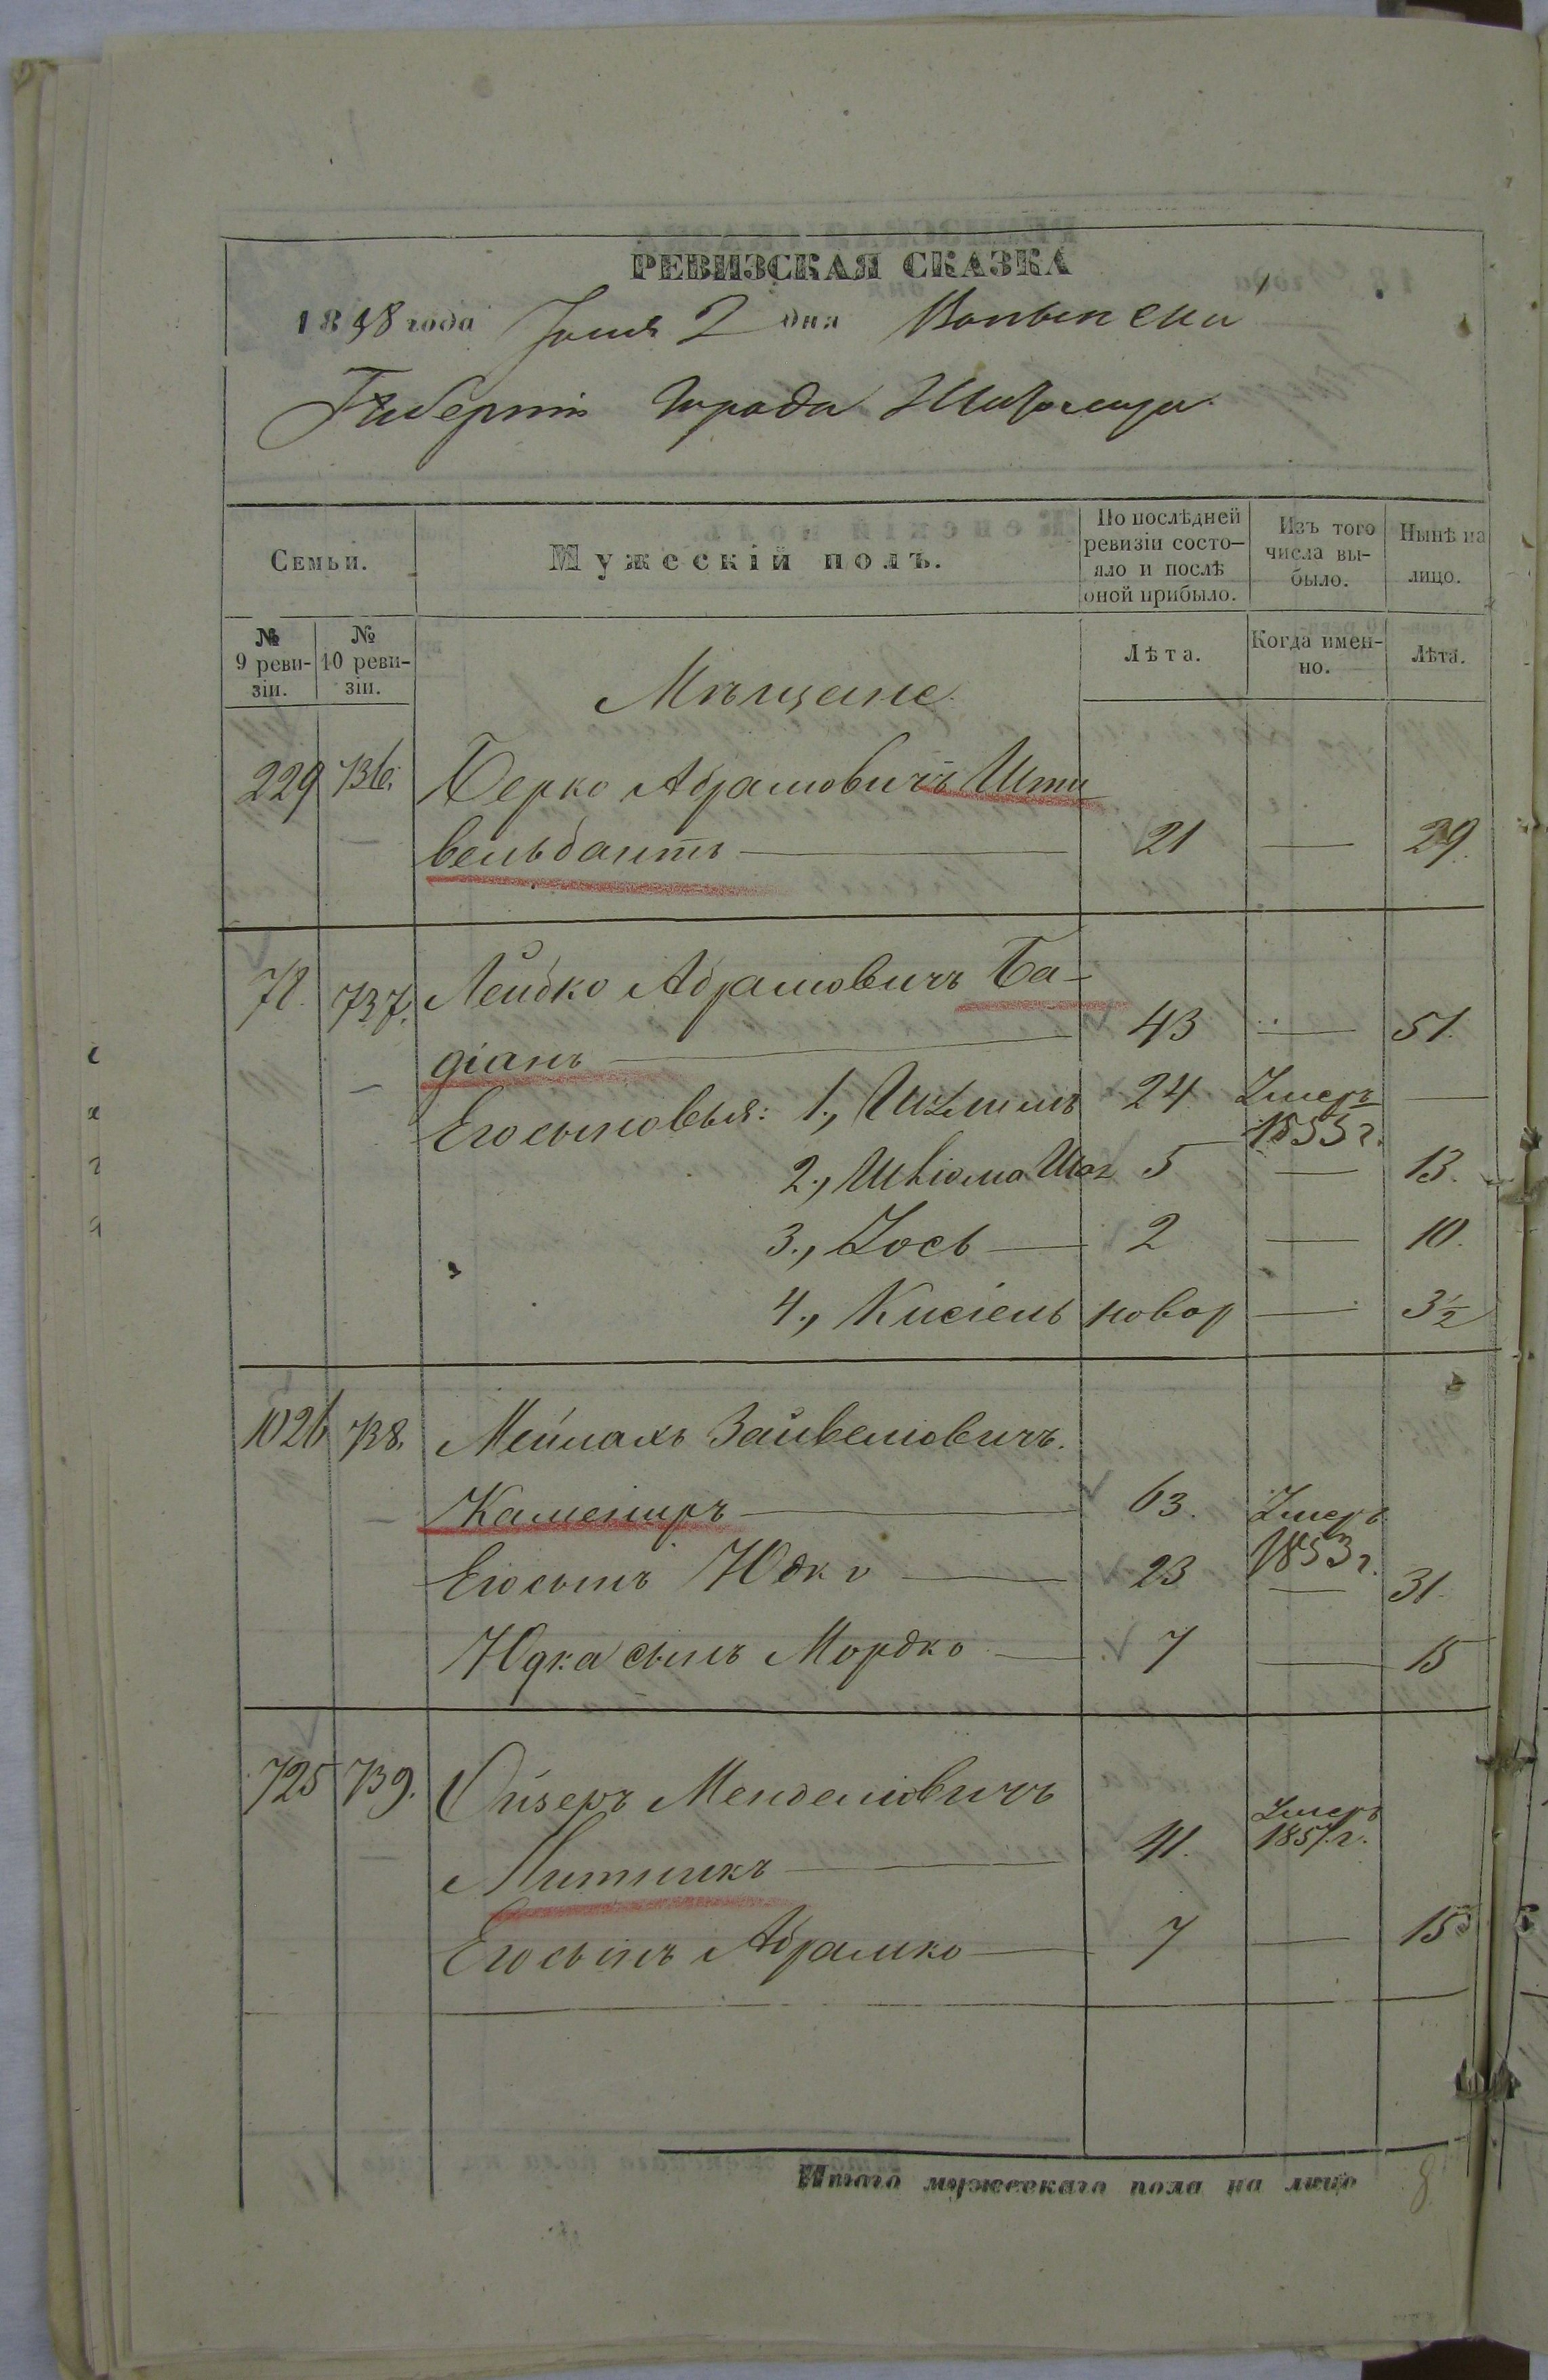 РЕВИЗСКАЯ СКАЗКА
1858 года Юнія 2 дня Волынской
Губерніи Города Житомира
Семьи.
Мужескій полъ.
По послѣдней ревизіи состо-яло и послѣ оной прибыло.
Изъ того числа вы-было.
Нынѣ на лицо.
№ 9 реви-зіи.
№ 10 реви-зіи.
Лѣта.
Когда имен-но.
Лѣта.
Мѣщане
229 736. Берко Абрамовичъ Шти
вельбантъ 21 — 29.
71. 737. Лейбко Абрамовичъ Ба-
діанъ 43 — 51.
Его сыновья: 1., 24 Умеръ 1853 г. —
2., 5 — 13.
3., Зось 2 — 10.
4., Кисіель новор — 3½
1026 738. Мейлахъ Зайвеловичъ.
Камениръ 63. Умеръ 1853 г.
Его сынъ Юдко 23 — 31.
Юдка сынъ Мордко 7 — 15
725 739. Ойзеръ Менделовичъ
Литникъ 41. Умеръ 1857. г.
Его сынъ Абрамко 7 — 15
Итого мужескаго пола на лицо 8